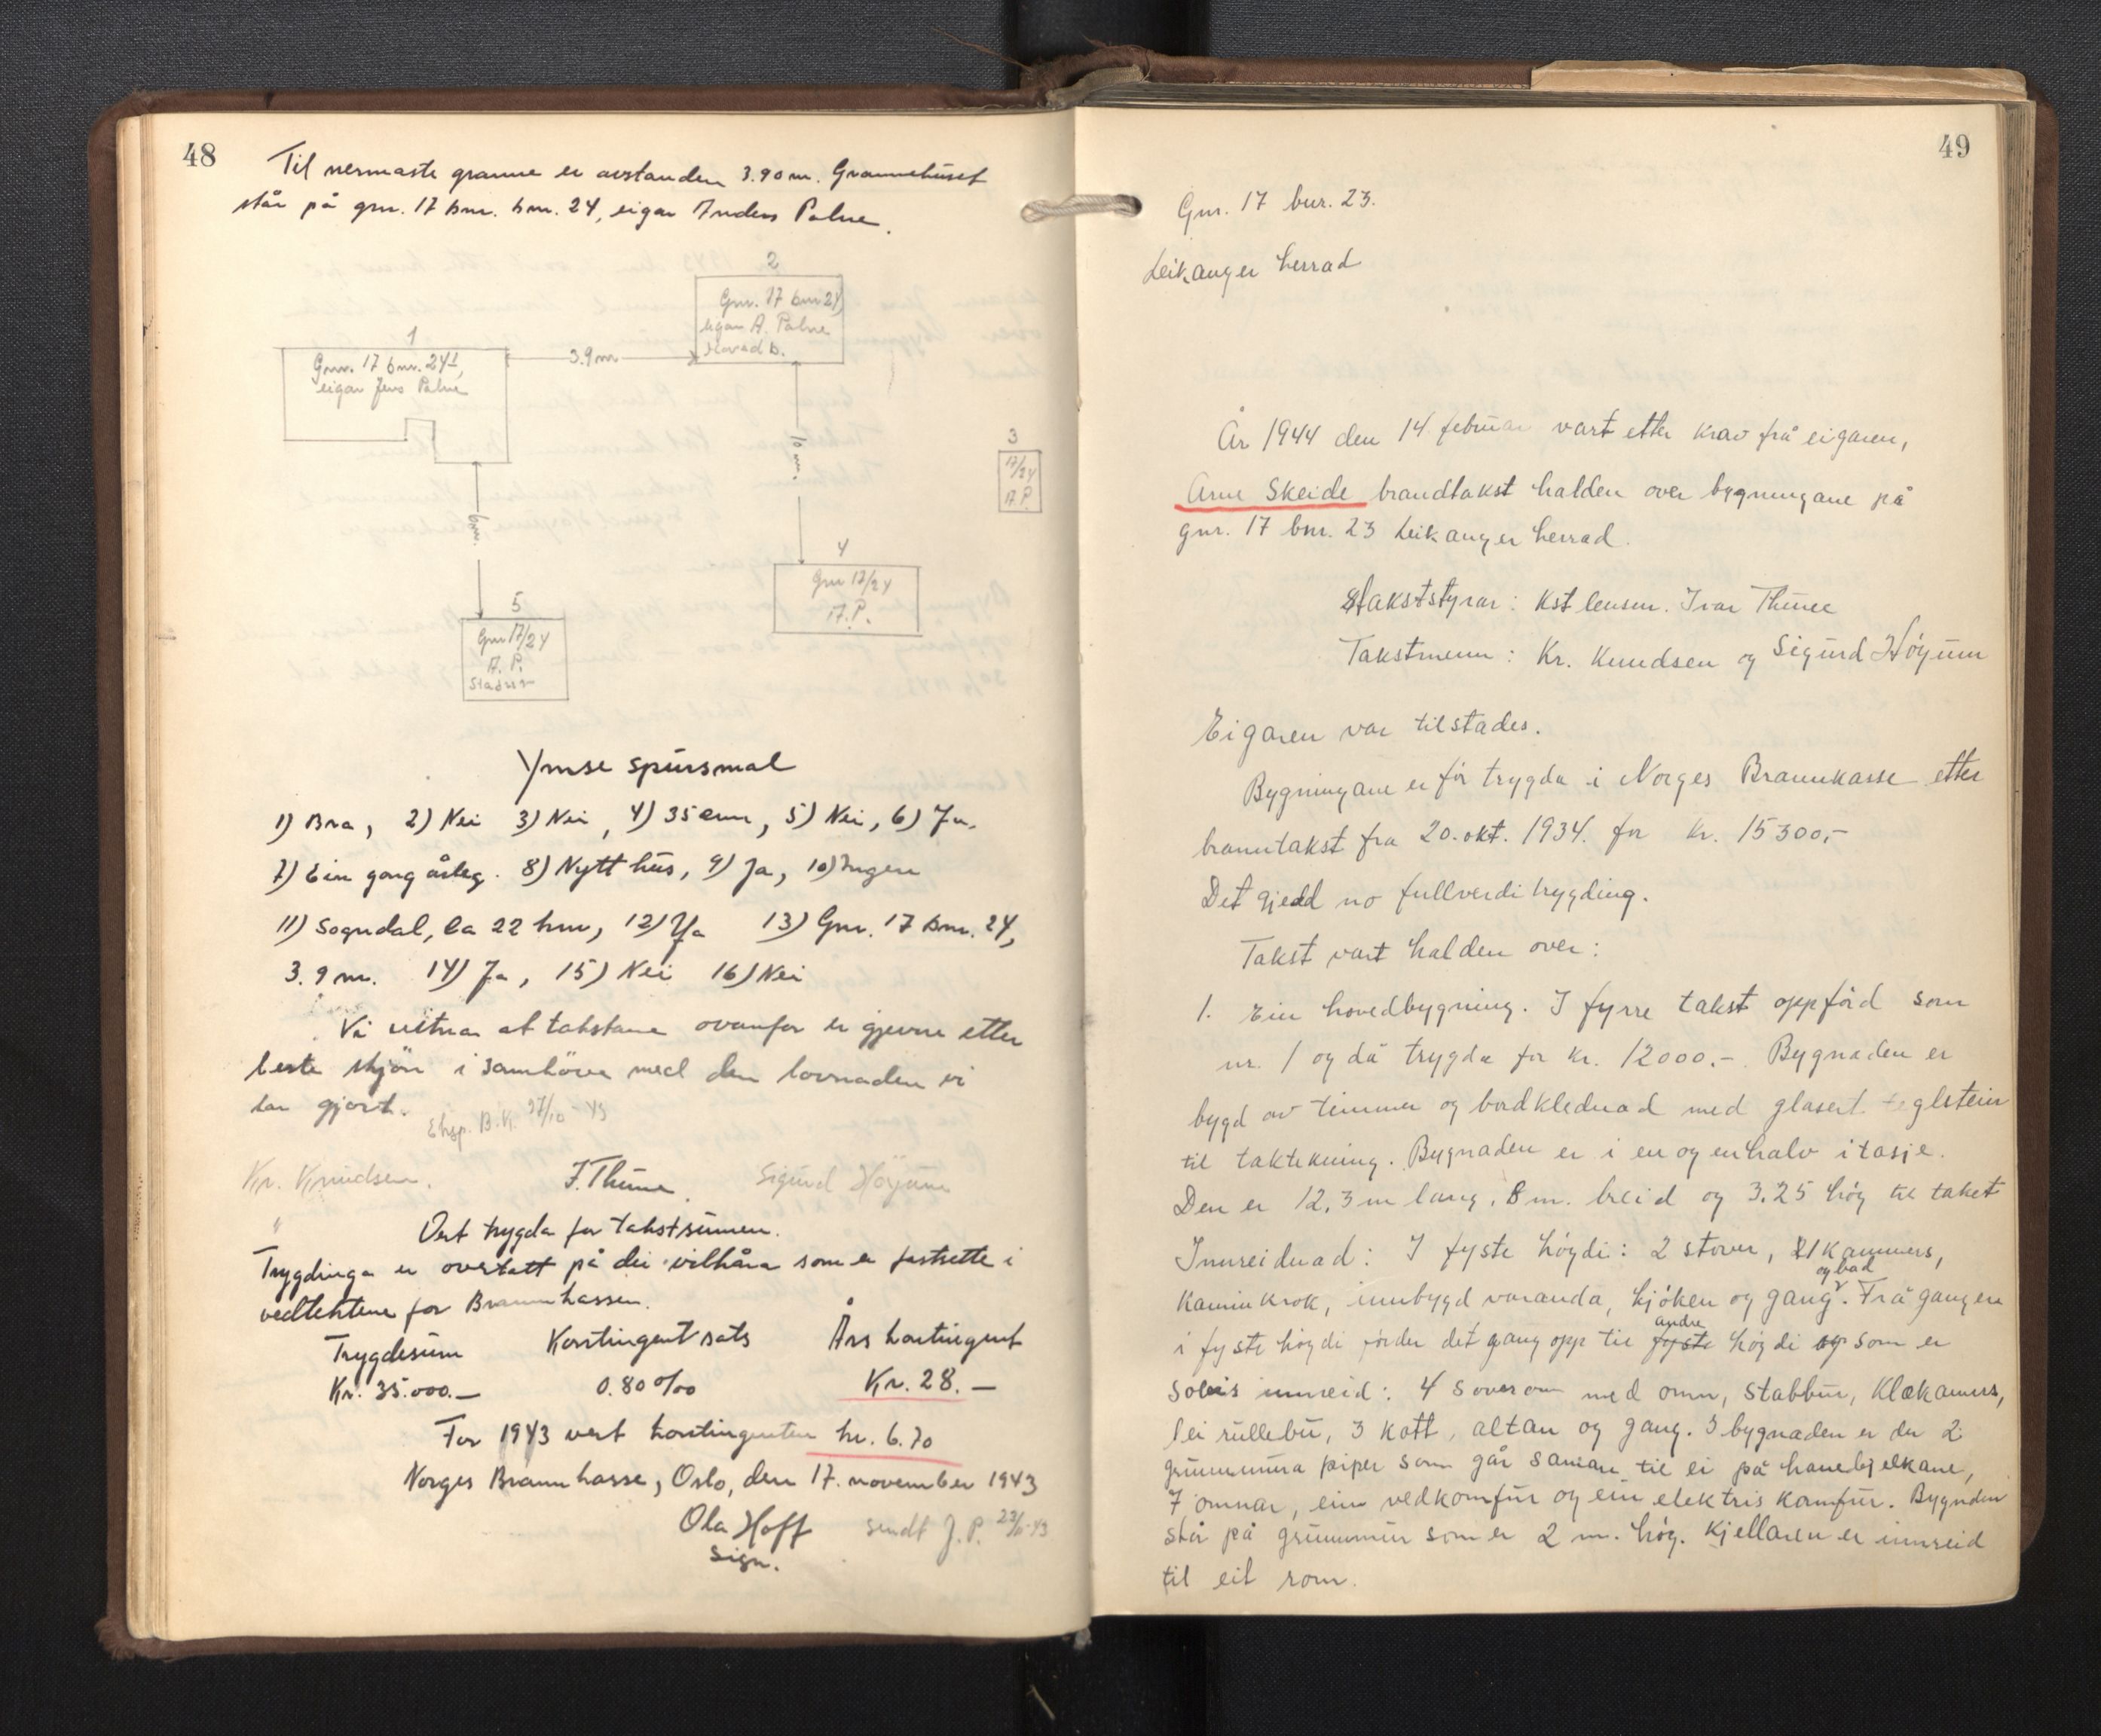 48
Til nermaste granne er avstanden 3.90 m. Grannehuset
står på gnr. 17 bnr. bnr. 24, eigar Anders Palne.
2
Gnr. 17 bnr 24,
eigar A. Palne
Hovedb.
1
Gnr. 17 bnr. 24¹,
eigar Jens Palne
3.9 m
10 m.
6 m.
3
17/24
A.P.
4
Gnr 17/24
A.P.
5
Gnr 17/24
A. P.
Ymse spursmal
1) Bra, 2) Nei 3) Nei, 4) 35 cm, 5) Nei, 6) Ja.
7) Ein gong årleg. 8) Nytt hus, 9) Ja, 10) Ingen
11) Sogndal, ca 22 km, 12) Ja 13) Gnr. 17 bnr. 24,
3.9 m. 14) Ja, 15) Nei 16) Nei
Vi vitnar at takstane ovanfor er gjevne etter
beste skjön i samhöve med den lovnaden vi
har gjort.
Eksp. B.K. 27/10-43
Kr. Knudsen. J. Thune. Sigurd Höyum
Vert trygda for takstsumen.
Trygdinga er overtatt på dei vilkåra som er fastsette i
vedtektene for Brannkassen.
Trygdesum Kontingentsats Års kontingent
Kr. 35.000.— 0.80 o/oo Kr. 28.—
For 1943 vert kontingenten kr. 6.70
Norges Brannkasse, Oslo, den 17. november 1943
Ola Hoff sendt J. P.
sign.
49
Gnr. 17 bnr. 23.
Leikanger herrad
År 1944 den 14 februar vart etter krav frå eigaren,
Arne Skeide brandtakst halden over bygningane på
gnr. 17 bnr. 23 Leikanger herrad.
Takststyrar: Kst lensm. Ivar Thune
Takstmenn: Kr. Knudsen og Sigurd Höyum
Eigaren var tilstades.
Bygningane er för trygda i Norges Brannkasse etter
branntakst fra 20. okt. 1934. for kr. 15300,-
Det gjeld no fullverditrygding.
Takst vart halden over:
1. Ein hovedbygning. I fyrre takst oppförd som
nr. 1 og då trygda for kr. 12000.-. Bygnaden er
bygd av timmer og bordklednad med glasert teglstein
til taktekning. Bygnaden er i en og en halv itasje.
Den er 12,3 m lang, 8 m. breid og 3.25 hög til taket
Innreidnad: I fyste högdi: 2 stover, 1 kammers,
kaminkrok, innbygd varanda, kjöken og gang og bad. Frå gangen
i fyste högdi förder det gang opp til fyste andre högdi og som er
soleis innreid: 4 soverom med omn, stabbur, klekamers,
1 ei rullebu, 3 kott, altan og gang. I bygnaden er der 2
grunnmura piper som går saman til ei på hanebjelkane,
7 omnar, ein vedkomfur og ein elektris komfur. Bygnden
står på grunnmur som er 2 m. hög. Kjellaren er innreid
til eit rom.